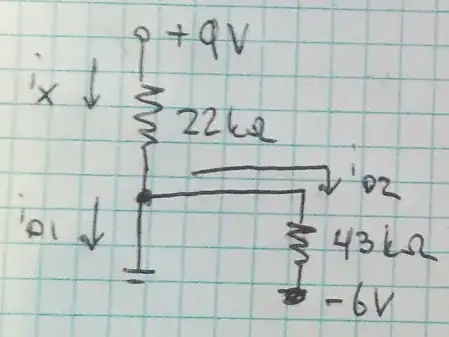 +9V
ix
22kΩ
iD2
iD1
43kΩ
-6V